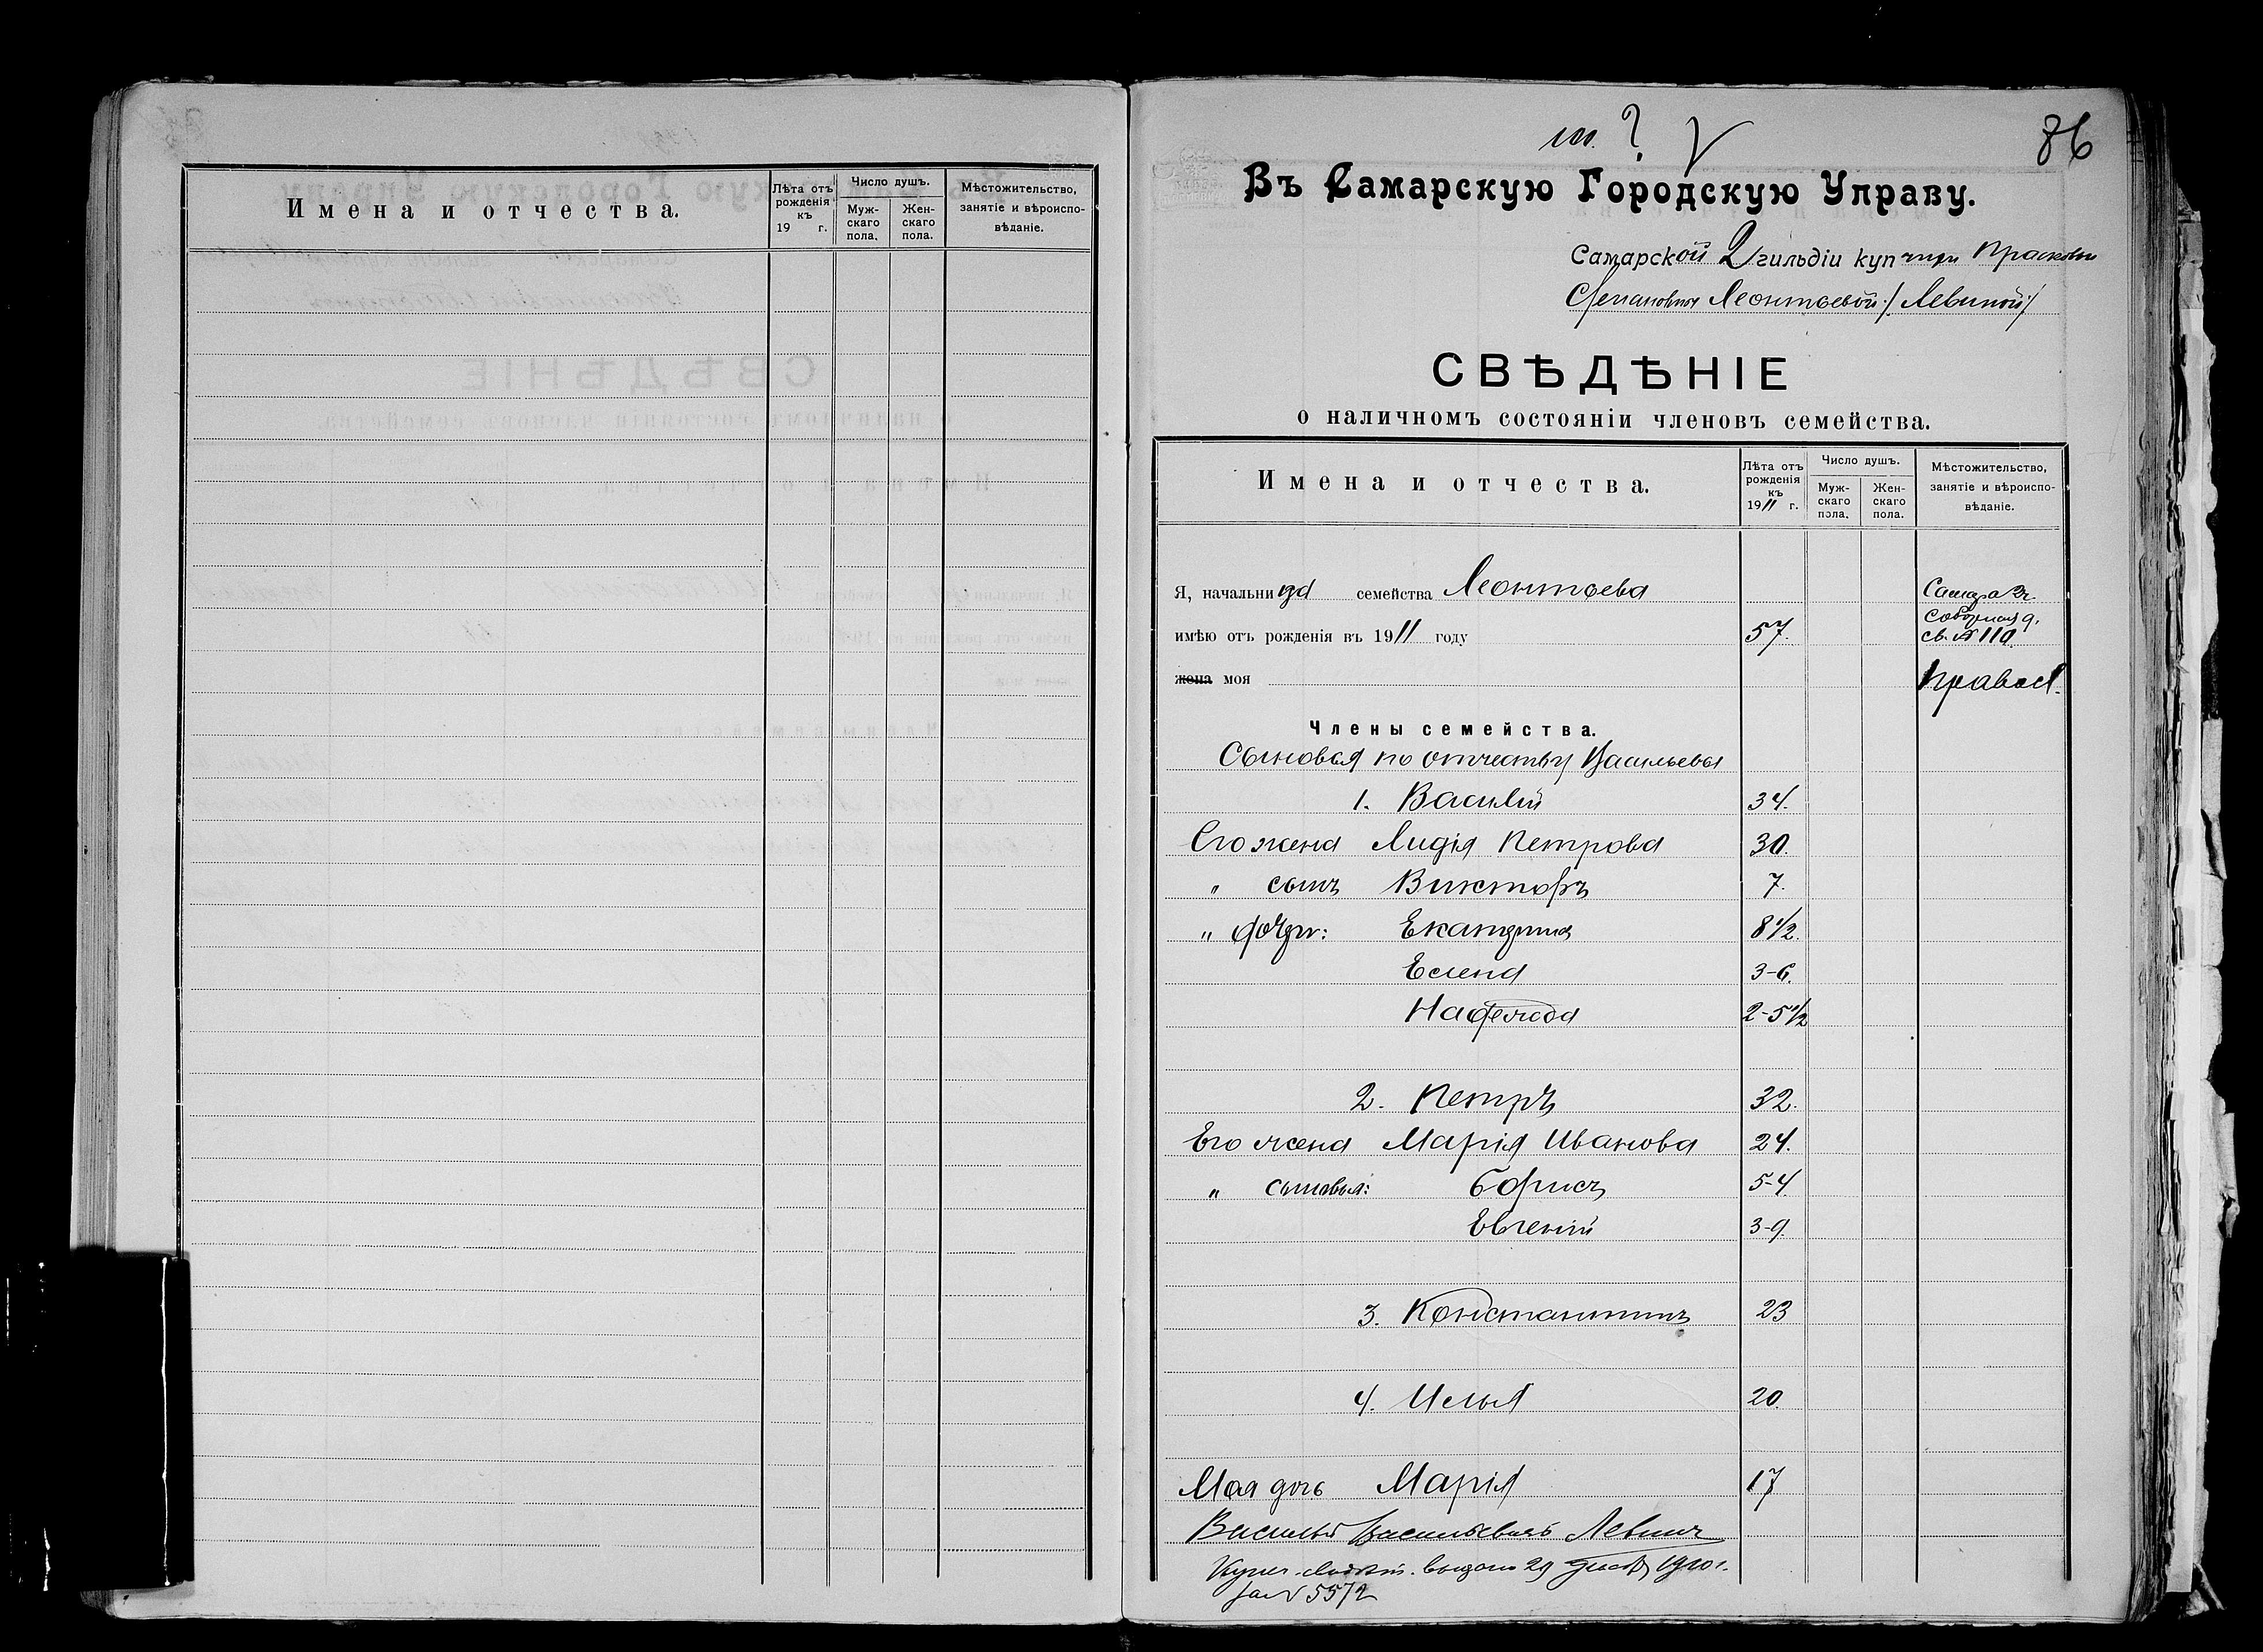 Имена и отчества.
Лѣта отъ рожденія къ 19 г.
Число душъ.
Мужскаго пола.
Женскаго пола.
Мѣстожительство, занятіе и вѣроисповѣданіе.
86
Въ Самарскую Городскую Управу.
Самарской 2 гильдіи купчихи Прасковьи
Степановны Леонтьевой /Левиной/
СВѢДѢНІЕ
о наличномъ состояніи членовъ семейства.
Имена и отчества.
Лѣта отъ рожденія къ 1911 г.
Число душъ.
Мужскаго пола.
Женскаго пола.
Мѣстожительство, занятіе и вѣроисповѣданіе.
Я, начальница семейства Леонтьева
Самара 3ч.
Соборная д.
имѣю отъ рожденія въ 1911 году 57.
св. № 110
жена моя
Правосл.
Члены семейства.
Сыновья по отчеству Васильевы
1. Василій 34.
Его жена Лидія Петрова 30.
" сынъ Викторъ 7.
" дочери: Екатерина 8 1/2.
Елена 3-6.
Надежда 2-5 1/2
2. Петръ 32.
Его жена Марія Иванова 24.
" сыновья: Борисъ 5-4.
Евгеній 3-9.
3. Константинъ 23
4. Илья 20.
Моя дочь Марія 17
Василій Васильевичъ Левинъ
Купеч. выдано 29 1910 г.
за № 5572